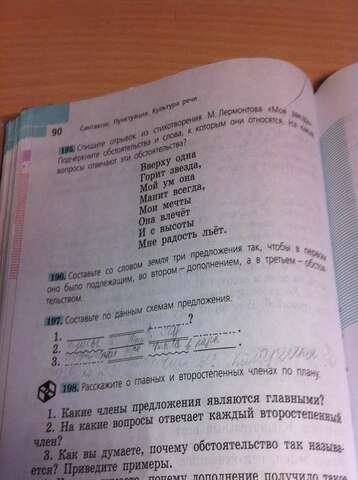 90
Синтаксис. Пунктуация. Культура речи
195. Спишите отрывок из стихотворения М. Лермонтова «Моя
Подчеркните обстоятельства и слова, к которым они относятся. На какие
вопросы отвечают эти обстоятельства?
Вверху одна
Горит звезда,
Мой ум она
Манит всегда,
Мои мечты
Она влечёт
И с высоты
Мне радость льёт.
196. Составьте со словом земля три предложения так, чтобы в первом
оно было подлежащим, во втором – дополнением, а в третьем – обстоя-
тельством.
197. Составьте по данным схемам предложения.
1. ?
2. .
3. .
198. Расскажите о главных и второстепенных членах по плану.
1. Какие члены предложения являются главными?
2. На какие вопросы отвечает каждый второстепенный
член?
3. Как вы думаете, почему обстоятельство так называ-
ется? Приведите примеры.
почему дополнение получило такое